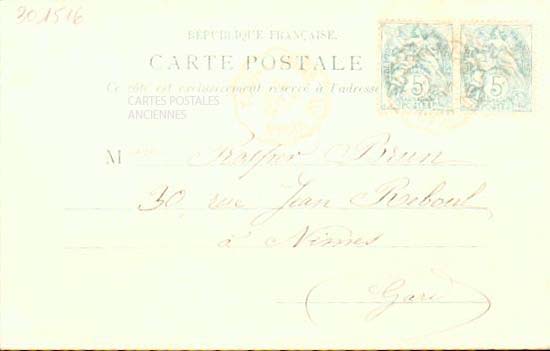 301516
RÉPUBLIQUE FRANÇAISE.
CARTE POSTALE
Ce côté est exclusivement réservé à l'adresse
CARTES POSTALES
ANCIENNES
M Brun
30, rue Jean Reboul
à Nimes
(Gard)
5 5